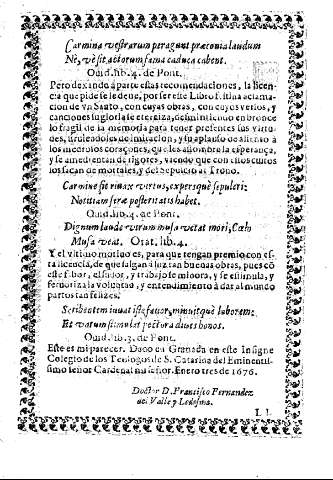 Carmina vestrarum peragunt præconia laudum
Nè, vè sit, actorum fama caduca cabent.
Ouid. lib. 4. de Pont.
Pero dexando à parte estas recomendaciones, la licen
cia que pide se le dene, por ser este Libro festiua aclama
cion de vn Santo, con cuyas obras, con cuyos versos, y
canciones su gloria se eterniza, desmintiendo en bronce
lo fragil de la memoria para tener presentes sus virtu
des, siruiendoles de imitacion, y su aplauso de aliento à
los coraçones, que les assombre la esperança,
y se amedrentan de rigores, viendo que con ellos
los sacan de mortales, y del Sepulcro al Trono.
Carmine sit viuax virtus, expersque sepulcri:
Notitiam seræ posteritatis habet.
Ouid. lib. 4. de Pont.
Dignum laude virum musa vetat mori, Cœlo
Musa veat. Orat. lib. 4.
Y el vltimo motiuo es, para que tengan premio con es-
ta licencia, de que salgan à luz tan buenas obras, pues cõ
este fabor, el sudor, y trabajo se mejora, y se estimula, y
femoriza la voluntad, y entendimiento à dar al mundo
partos tan felizes.
Scribentem iuuat ipse fauor, minuitque laborem:
Et vatum stimulat pectora diues honos.
Ouid. lib. 3. de Pont.
Este es mi parecer. Dado en Granada en este Insigne
Colegio de los Teologos de S. Catarina del Eminentis-
simo señor Cardenal mi señor. Enero tres de 1676.
Doctor D. Francisco Fernandez
del Valle y Ledesma.